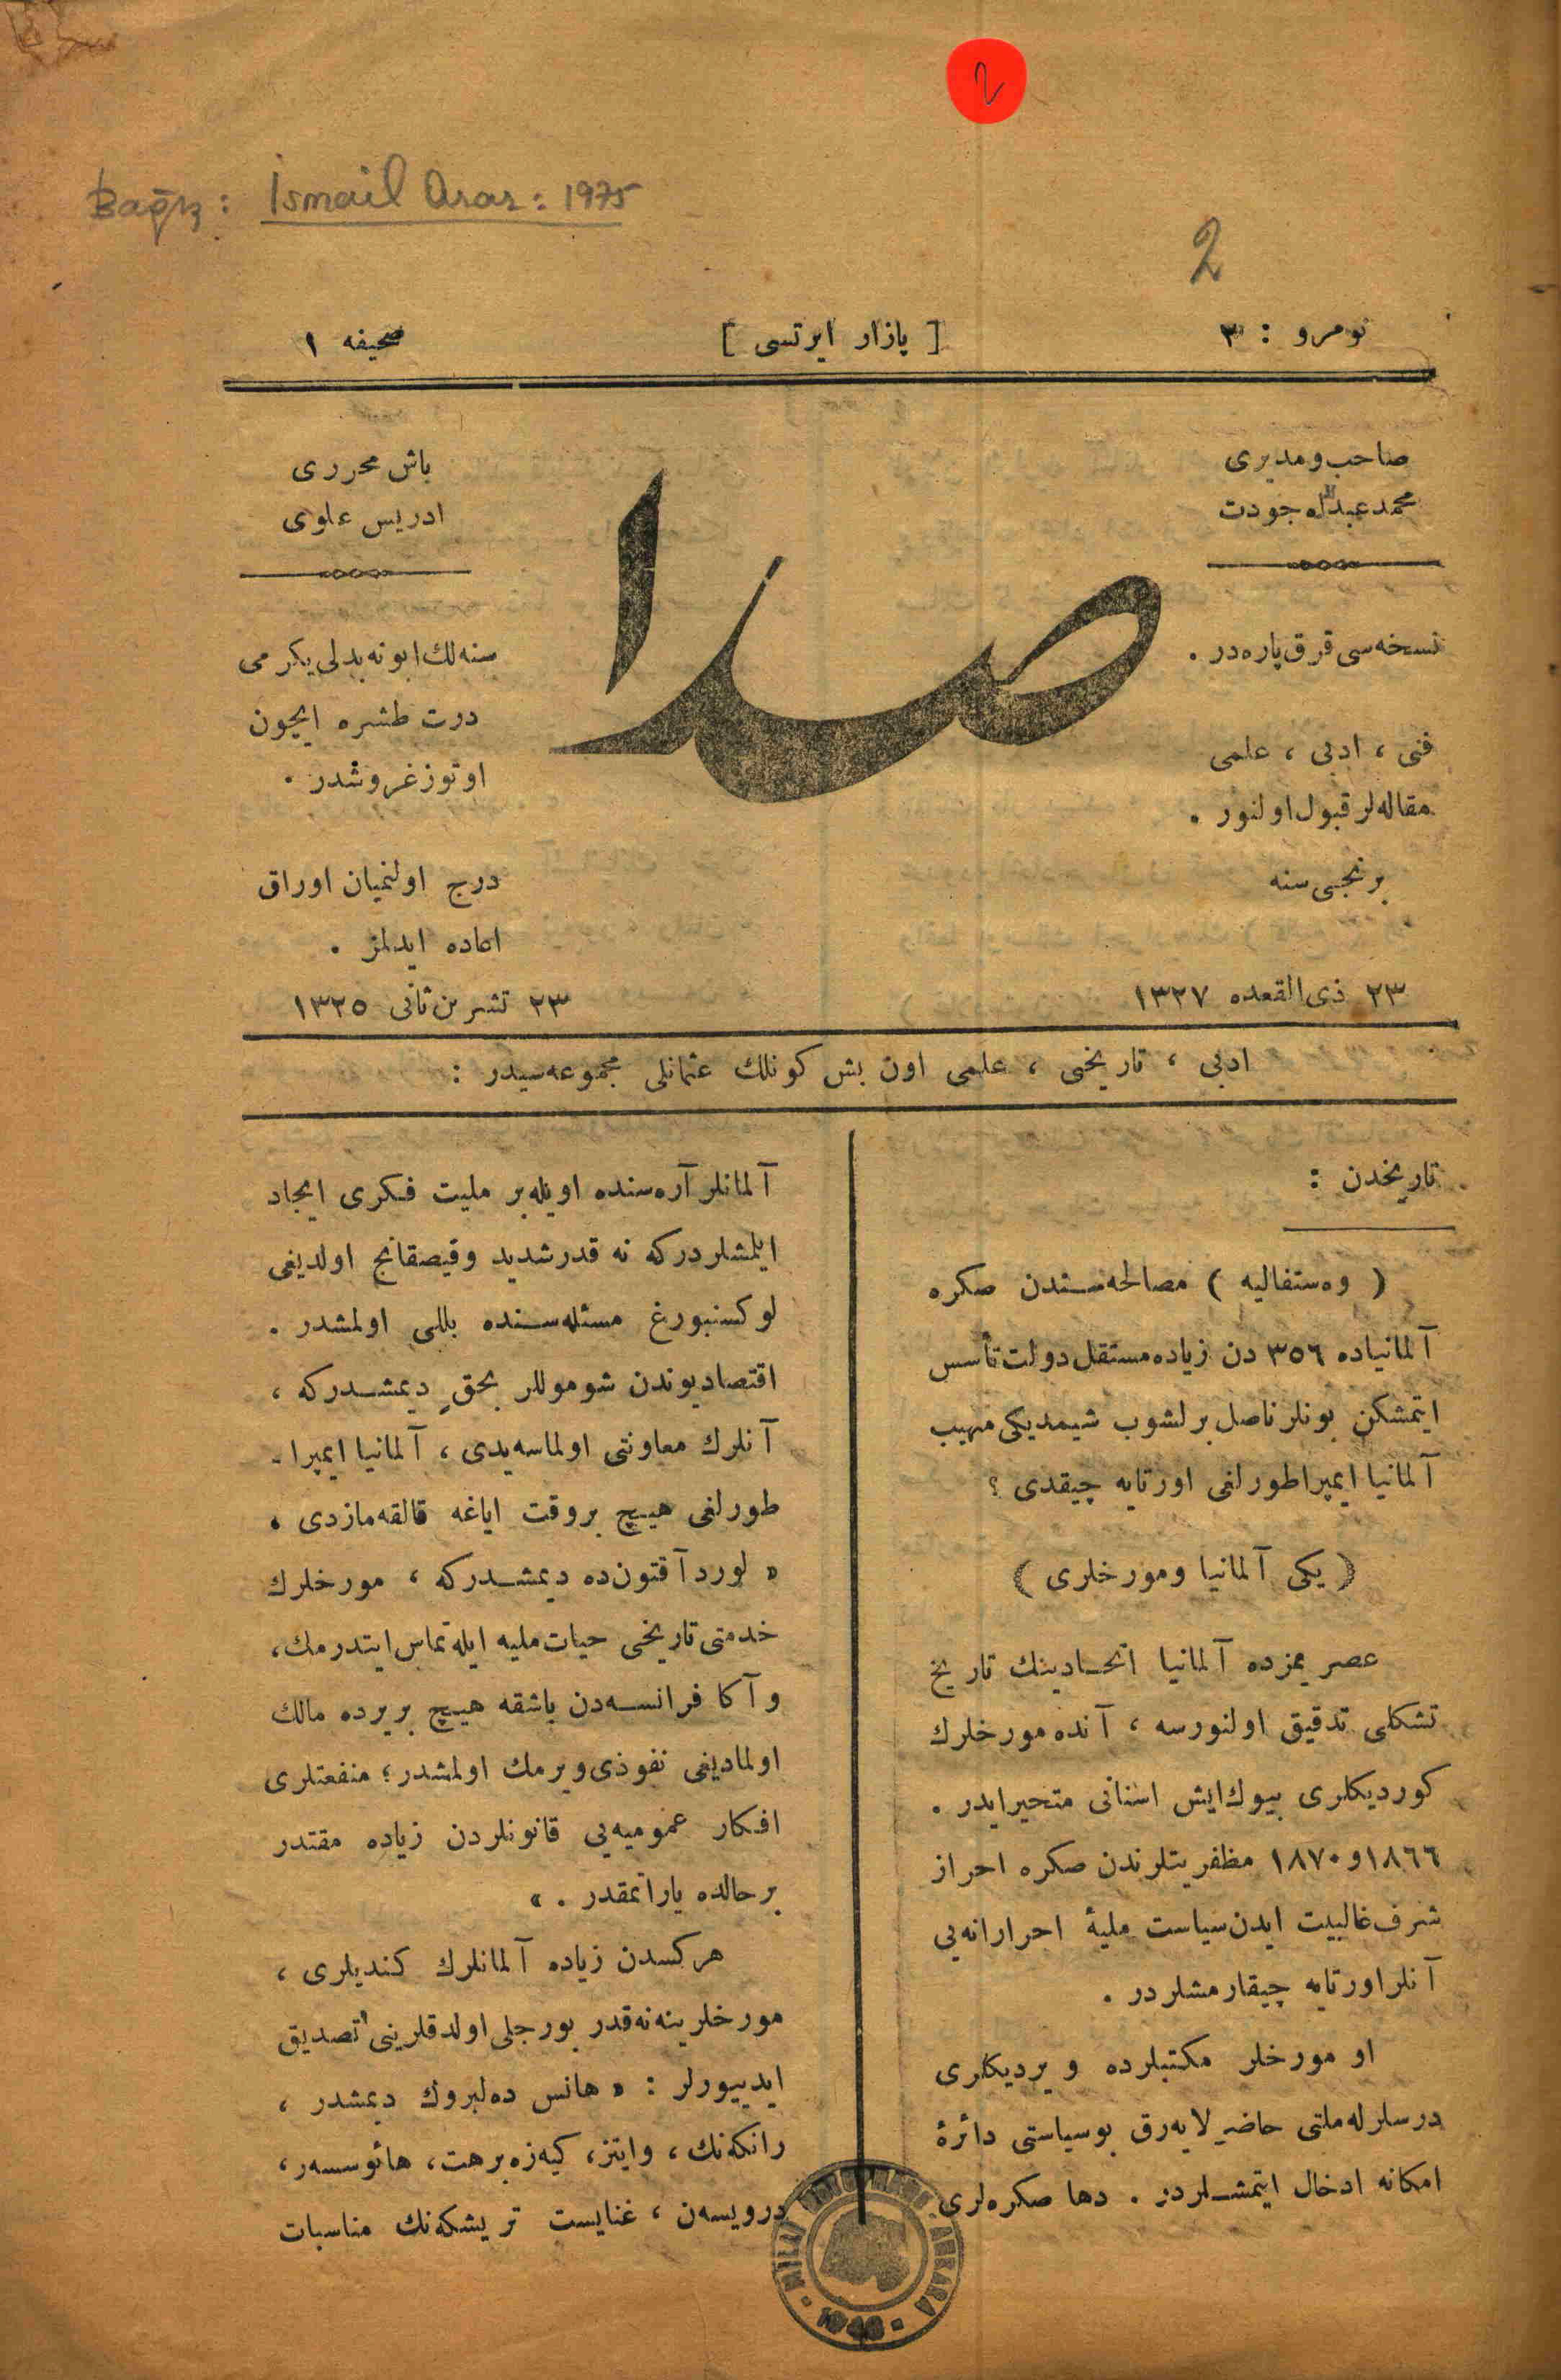 2
Bağış: İsmail Arar: 1975
2
نومرو : ٣
[ پازار ايرتسی ]
صحيفه ١
صاحب و مديری
محمد عبدالله جودت
نسخه‌سی قرق پاره‌در .
فنی ، ادبی ، علمی
مقاله‌لر قبول اولنور .
برنجی سنه
٢٣ ذی القعده ١٣٢٧
صدا
باش محرری
ادريس علوی
سنه‌لك ابونه بدلی يكرمی
درت طشره ايچون
اوتوز غروشدر .
درج اولنميان اوراق
اعاده ايدلمز .
٢٣ تشرين ثانی ١٣٢٥
ادبی ، تاريخی ، علمی اون بش كونلك عثمانلی مجموعه‌سيدر :
تاريخدن :
( وه‌ستفاليه ) مصالحه‌سندن صكره
آلمانياده ٣٥٦ دن زياده مستقل دولت تأسس
ايتمشكن بونلر ناصل برلشوب شيمديكی مهيب
آلمانيا ايمپراطورلغی اورتايه چيقدی ؟
( يكی آلمانيا ومورخلری )
عصريمزده آلمانيا اتحادينك تاريخ
تشكلی تدقيق اولنورسه ، آنده مورخلرك
كورديكلری بيوك ايش انسانی متحير ايدر .
١٨٦٦ و ١٨٧٠ مظفريتلرندن صكره احراز
شرف غالبيت ايدن سياست مليۀ احرارانه‌يی
آنلر اورتايه چيقارمشلردر .
او مورخلر مكتبلرده ويرديكلری
درسلرله ملتی حاضرلايه‌رق بو سياستی دائرۀ
امكانه ادخال ايتمشلردر . دها صكره‌لری
آلمانلر آره‌سنده اويله بر مليت فكری ايجاد
ايلمشلردركه نه قدر شديد وقيصقانج اولديغی
لوكسنبورغ مسئله‌سنده بللی اولمشدر .
اقتصاديوندن شموللر بحقٍ ديمشدركه ،
آنلرك معاونتی اولماسه‌يدی ، آلمانيا ايمپرا-
طورلغی هيچ بر وقت اياغه قالقه‌مازدی ،
« لورد آقتون ده ديمشدركه ، مورخلرك
خدمتی تاريخی حيات مليه ايله تماس ايتدرمك،
و آكا فرانسه‌دن باشقه هيچ بر يرده مالك
اولماديغی نفوذی ويرمك اولمشدر؛ منفعتلری
افكار عموميه‌يی قانونلردن زياده مقتدر
بر حالده ياراتمقدر . »
هركسدن زياده آلمانلرك كنديلری ،
مورخلرينه نه‌قدر بورجلی اولدقلرينی تصديق
ايدييورلر : « هانس ده‌لبروك ديمشدر ،
رانكه‌نك ، وايتز، كيه‌زه‌برهت، هائوسسه‌ر،
درويسه‌ن ، غنايست تريشكه‌نك مناسبات
MİLLİ KÜTÜPHANE ANKARA 1946